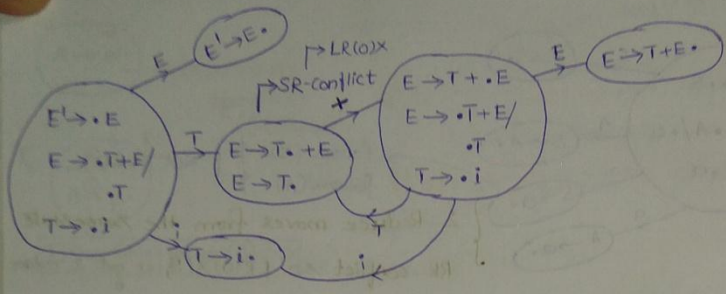 E' → E•
E
→ LR(0)×
→ SR-conflict
E → T+E•
E
E' → •E
E → •T+E/
•T
T → •i
T
E → T• + E
E → T•
+
E → T + •E
E → •T+E/
•T
T → •i
T
i
T → i•
i